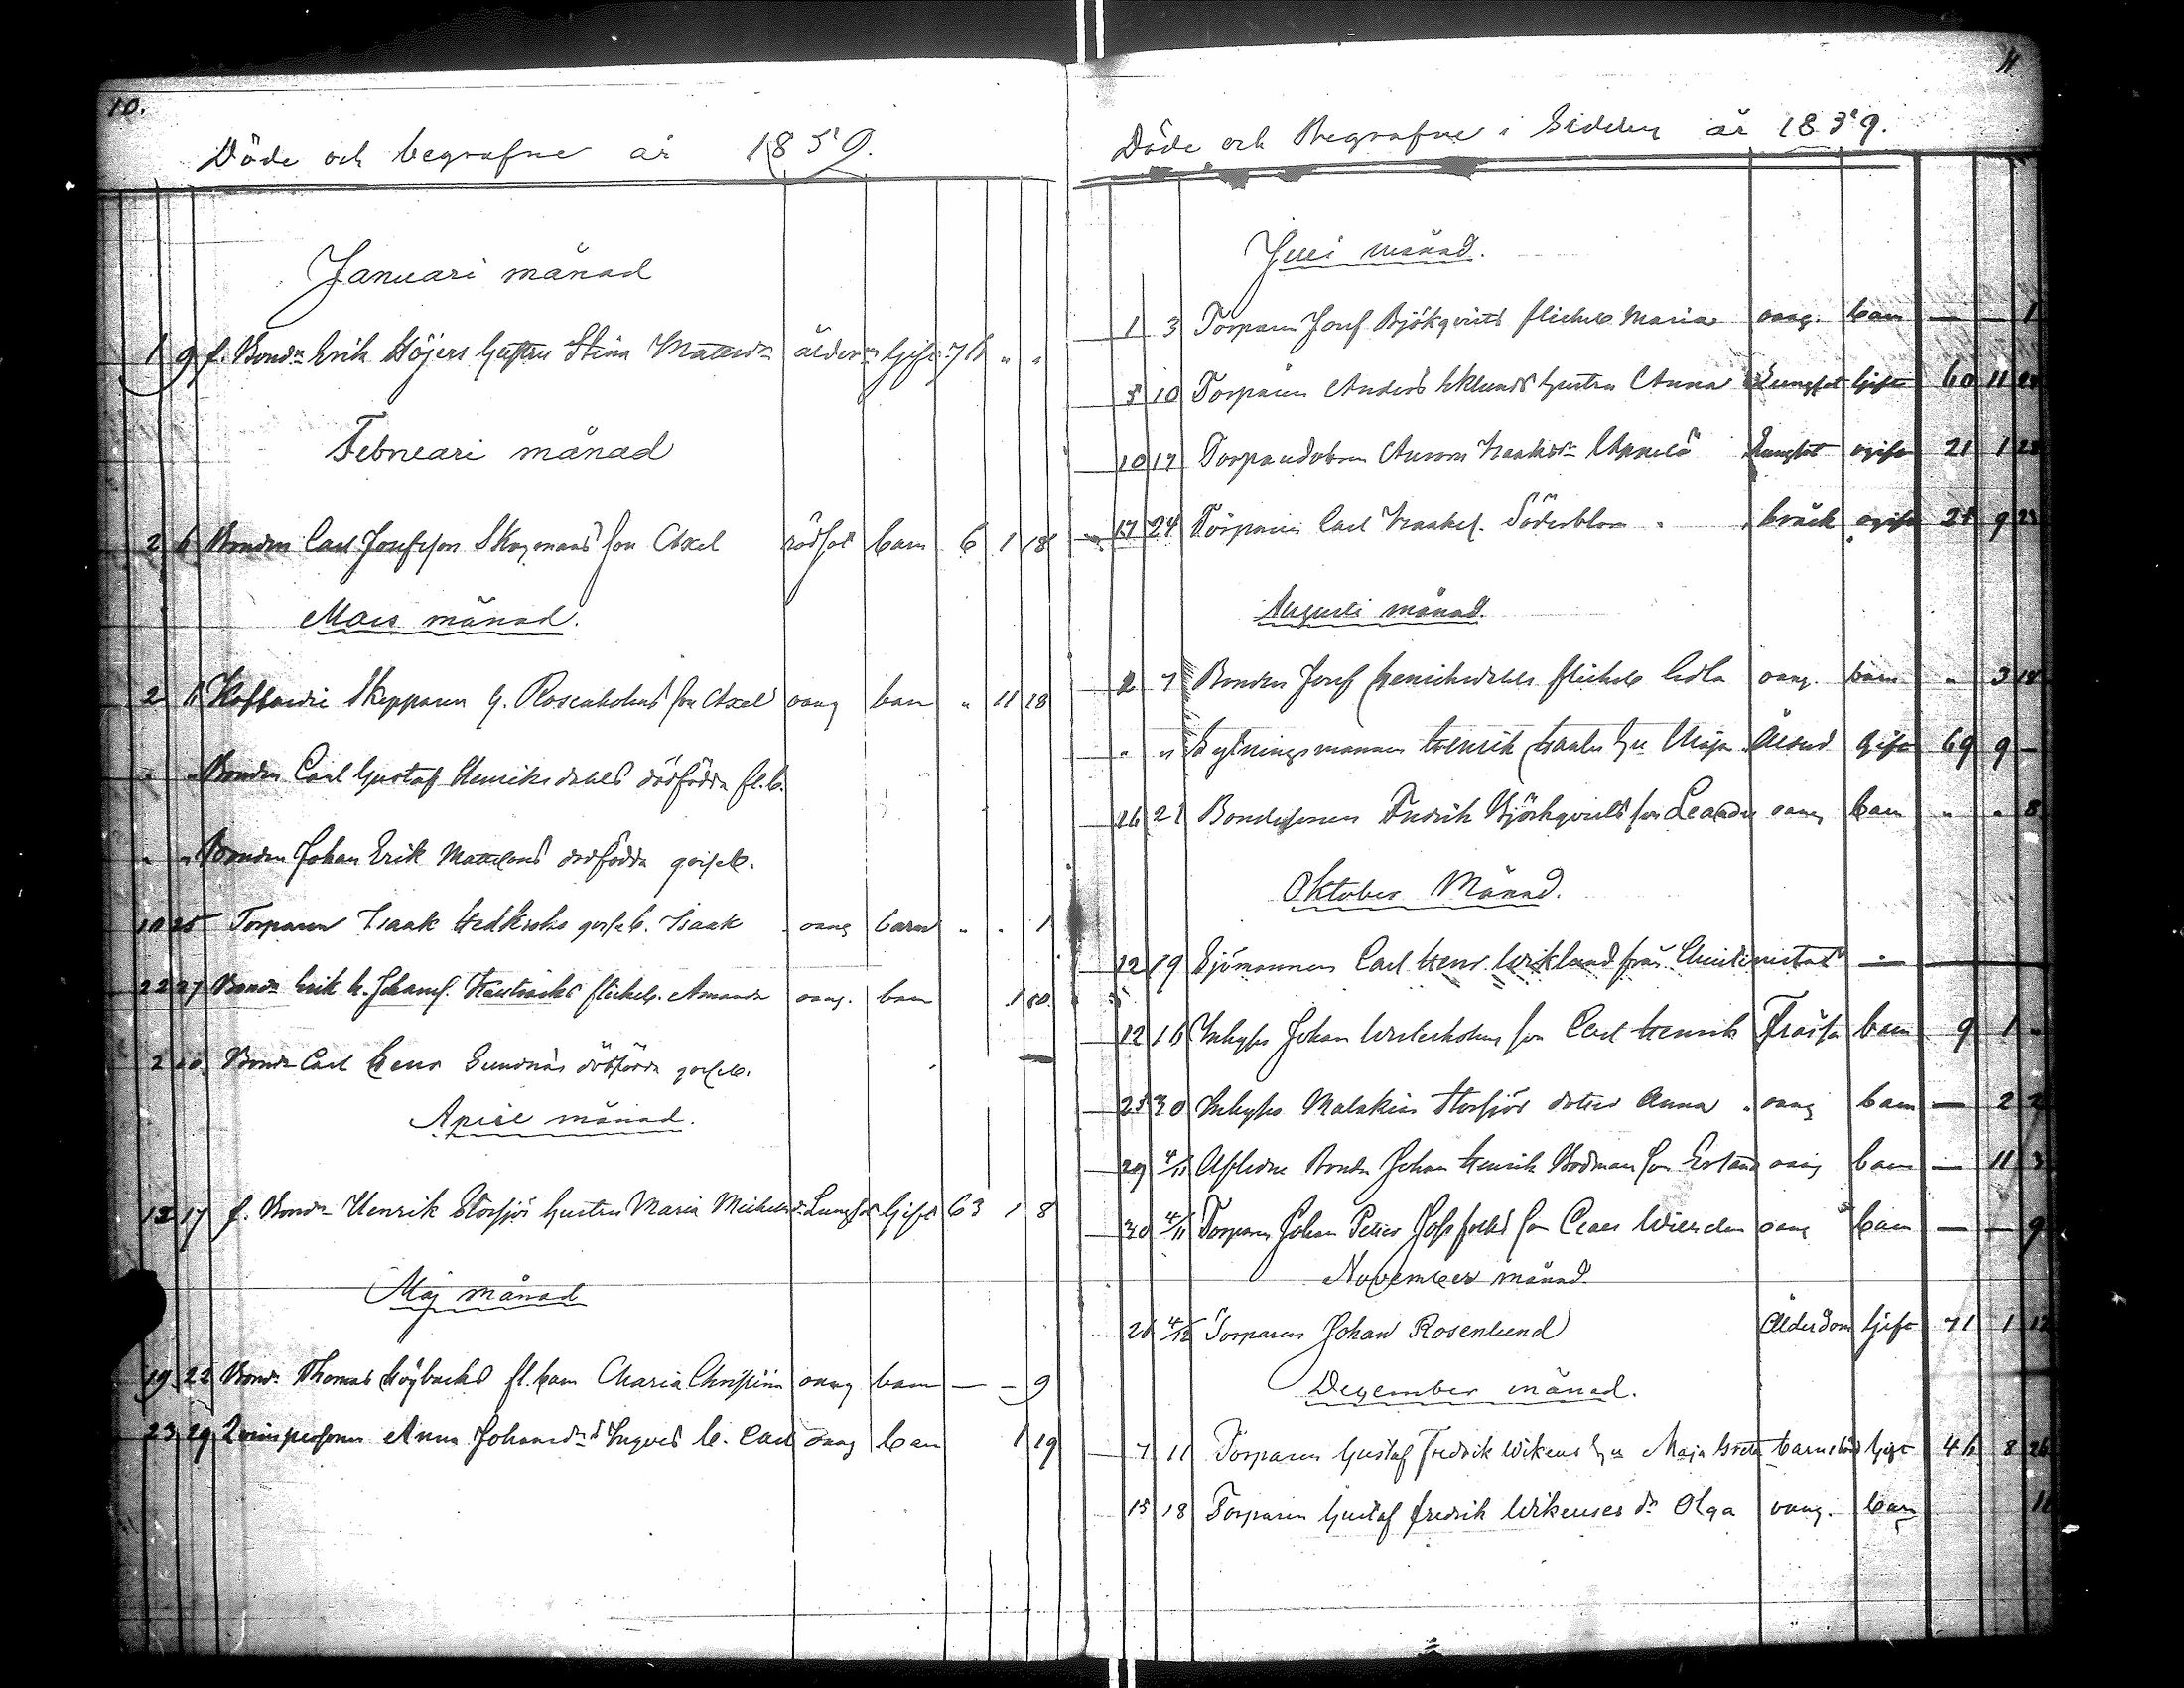 10.
Döde och begrafne år 1859.
Januari månad
1 9 f. Bondn Erik Höjers hustru Stina Mattsdr ålderd Gift 76 " "
Februari månad
2 6 Bonden Carl Josefsson Skogmans son Axel rödsot barn 6 1 18
Mars månad.
2 Koffardie Skepparen G. Rosenholms son Axel oang barn " 11 18
" " Bonden Carl Gustaf Henriksdahls dödfödda fl.b.
" " Bonden Johan Erik Mattssons dödfödda gosseb.
10 25 Torparen Isaak gosseb. Isaak oang barn " . 1
22 27 Bondn Erik h. Johanss. flickeb. Amanda oang. barn 1
2 10. Bondn Carl Henr Sundnäs dödfödda gosseb.
April månad.
12 17 f. Bondn Henrik Storsjös hustru Maria Michelsdr Lungsot Gift 63 1 8
Maj månad
19 22 Bondn Thomas Höybacks fl. barn Maria Christina oang barn — — 9
23 29 Qvinspersonen Anna Johansdr Ingves b. Carl oang barn 1 19
11
Döde och Begrafne i Sideby år 1859.
Juli månad.
1 3 Torparen Josef Björkqvists flickeb Maria oang. barn — 1
5 10 Torparen Anders Eklunds hustru Anna Lungsot Gift 60 11
10 17 Torparedotren Anna Isaksdr Lungsot ogift 21 1 28
17 24 Torparen Carl Isaakss. Söderblom " bråck ogift 21 9 23
Augusti månad.
2 7 Bonden Josef Henriksdahls flickeb Edla oang. barn " 3 18
" " Sytningsmannen Henrik hu Maja Ålderd Gift 69 9 —
16 21 Bondesonen Fredrik Björkqvists son Leander oang barn " " 8
Oktober Månad.
12 19 Sjömannen Carl Henr. Wiklund från Christinestad —
12 16 Inhyses Johan Westerholms son Carl Henrik Frässa barn 9 1 "
25 30 Inhyses Malakias Storsjös dotter Anna " oang barn — 2 2
29 4/11 Aflidne Bondn Johan Henrik Bodmans son Erland oang barn — 11 3
30 4/11 Torparen Johan Petter Hossfolks son Claes Wilhelm oang barn — — 9
November månad
26 4/12 Torparen Johan Rosenlund Ålderdom Gift 71 1 12
Dezember månad.
7 11 Torparen Gustaf Fredrik Wikens hu Maja Greta barnsbörd Gift 46 8 26
15 18 Torparen Gustaf Fredrik Wikenses dr Olga oang. barn 11